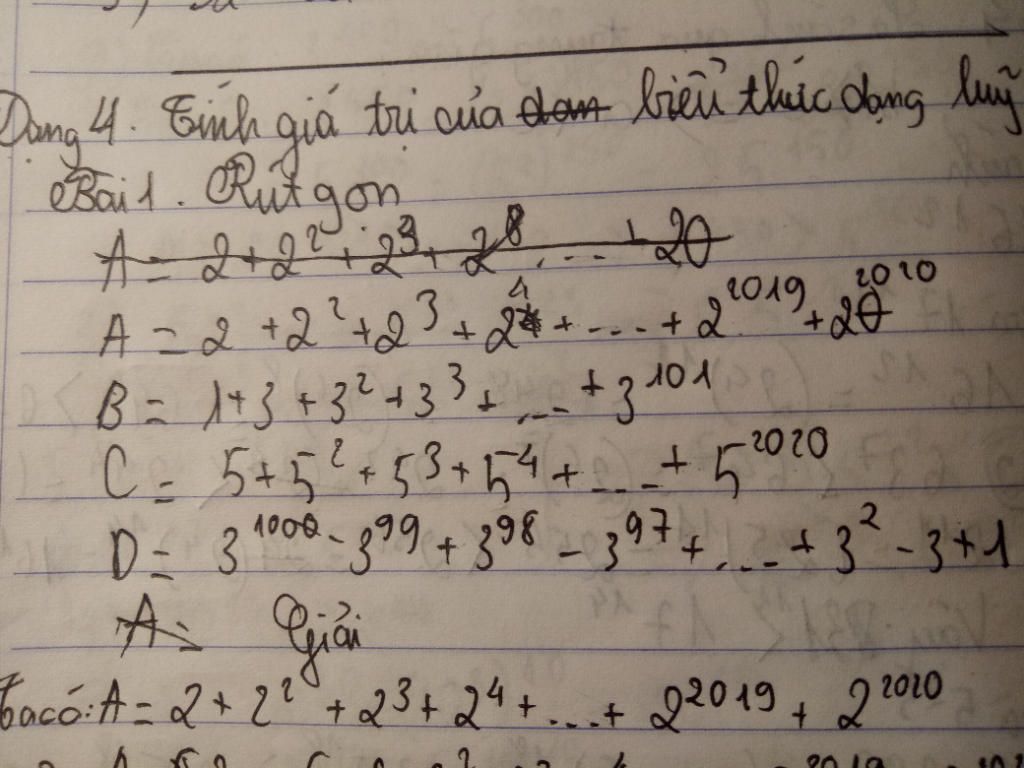 Dạng 4. Tính giá trị của biểu thức dạng luỹ
Bài 1. Rút gọn
A = 2 + 2² + 2³ + 2⁸ ... + 20
A = 2 + 2² + 2³ + 2⁴ + ... + 2²⁰¹⁹ + 2²⁰²⁰
B = 1 + 3 + 3² + 3³ + ... + 3¹⁰¹
C = 5 + 5² + 5³ + 5⁴ + ... + 5²⁰²⁰
D = 3¹⁰⁰ - 3⁹⁹ + 3⁹⁸ - 3⁹⁷ + ... + 3² - 3 + 1
A = Giải
Ta có: A = 2 + 2² + 2³ + 2⁴ + ... + 2²⁰¹⁹ + 2²⁰²⁰